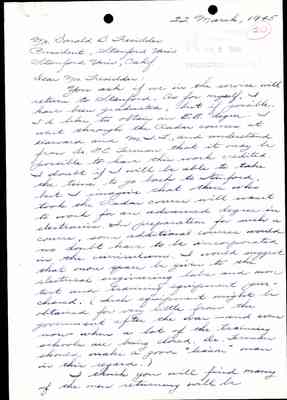 22 March, 1945
Mr. Donald B Tresidder
President, Stanford Univ
Stanford Univ, Calif
Dear Mr. Tresidder:
You ask if we in the service will
return to Stanford. As for myself, I
have been graduated, but if possible,
I'd like to obtain an E.E. degree. I
went through the Radar courses at
Harvard and M.I.T, and understand
from Dr F.E. Terman that it may be
possible to have this work credited
I doubt if I will be able to take
the time to go back to Stanford,
but I imagine that others who
took the Radar course will want
to work for an advanced degree in
electronics. In preparation for such a
course, some additional courses would
no doubt have to be incorporated
in the curriculum. I would suggest
that more space be given to the
electrical engineering labs and more
test and training equipment pur-
chased. (Such equipment might be
obtained for very little from the
government after the war and even
now when a lot of the training
schools are being closed. Dr. Terman
should make a good "liaison" man
in this regard.)
I think you will find many
of the men returning will be